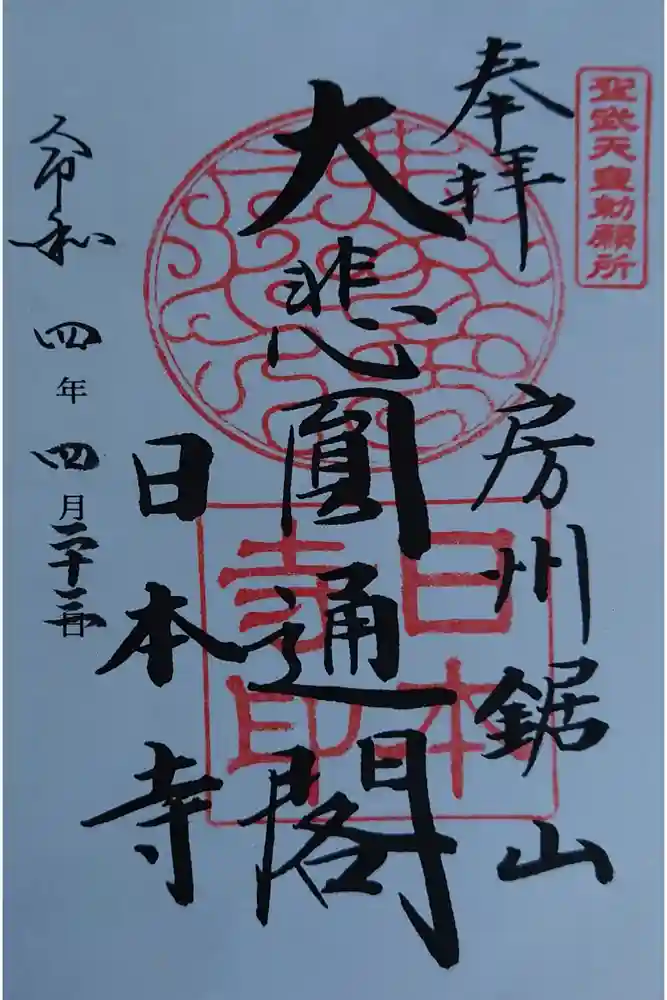 聖武天皇勅願所
奉拝
房州鋸山
大悲圓通閣
日本寺
日本寺印
令和四年四月二十三日